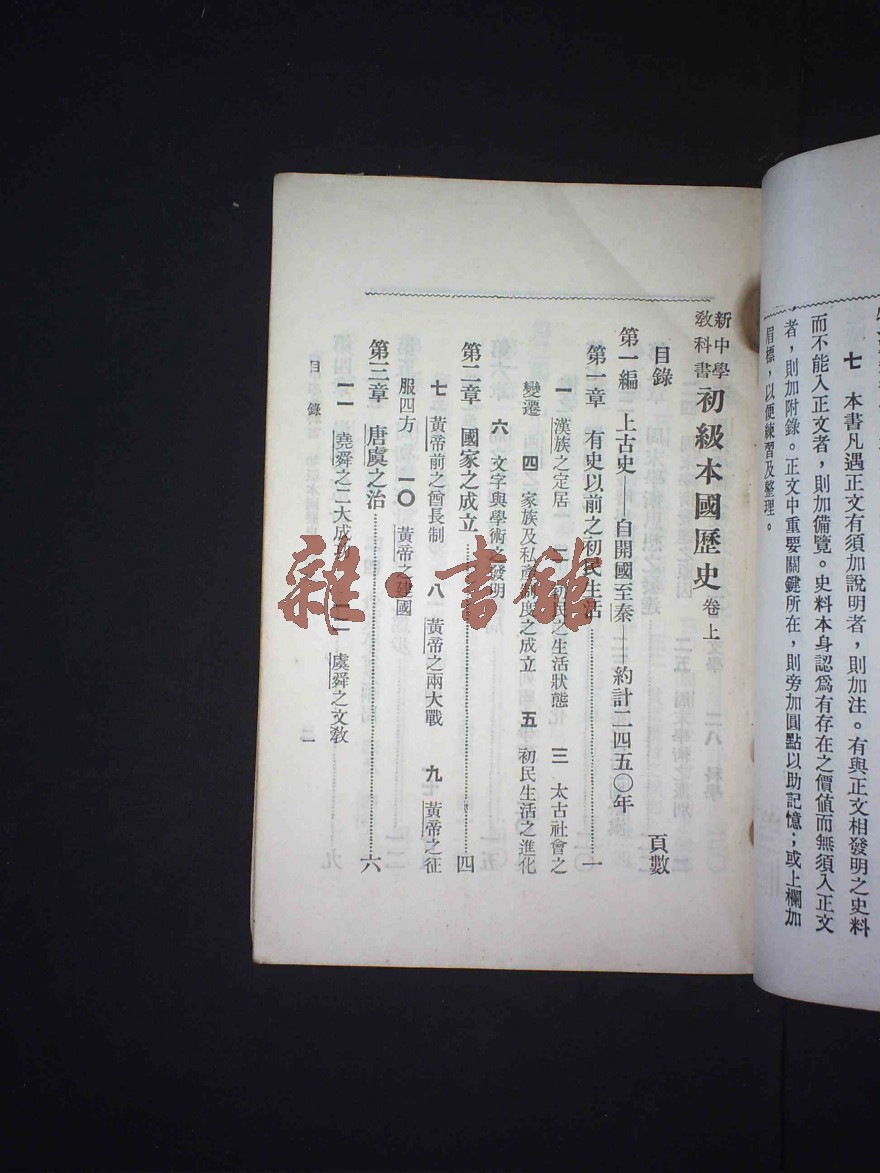 七　本書凡遇正文有須加說明者，則加注。有與正文相發明之史料
而不能入正文者，則加備覽。史料本身認爲有存在之價値而無須入正文
者，則加附錄。正文中重要關鍵所在，則旁加圓點以助記憶；或上欄加
眉標，以便練習及整理。
新中學
敎科書
初級本國歷史卷上
目錄　頁數
第一編　上古史——自開國至秦——約計二四五〇年
第一章　有史以前之初民生活…………一
一　漢族之定居　二　初民之生活狀態　三　太古社會之
變遷　四　家族及私產制度之成立　五　初民生活之進化
六　文字與學術之發明
第二章　國家之成立…………四
七　黃帝前之酋長制　八　黃帝之兩大戰　九　黃帝之征
服四方　一〇　黃帝之建國
第三章　唐虞之治…………六
一一　堯舜之二大成功　一二　虞舜之文敎
目錄　一
雜·書館